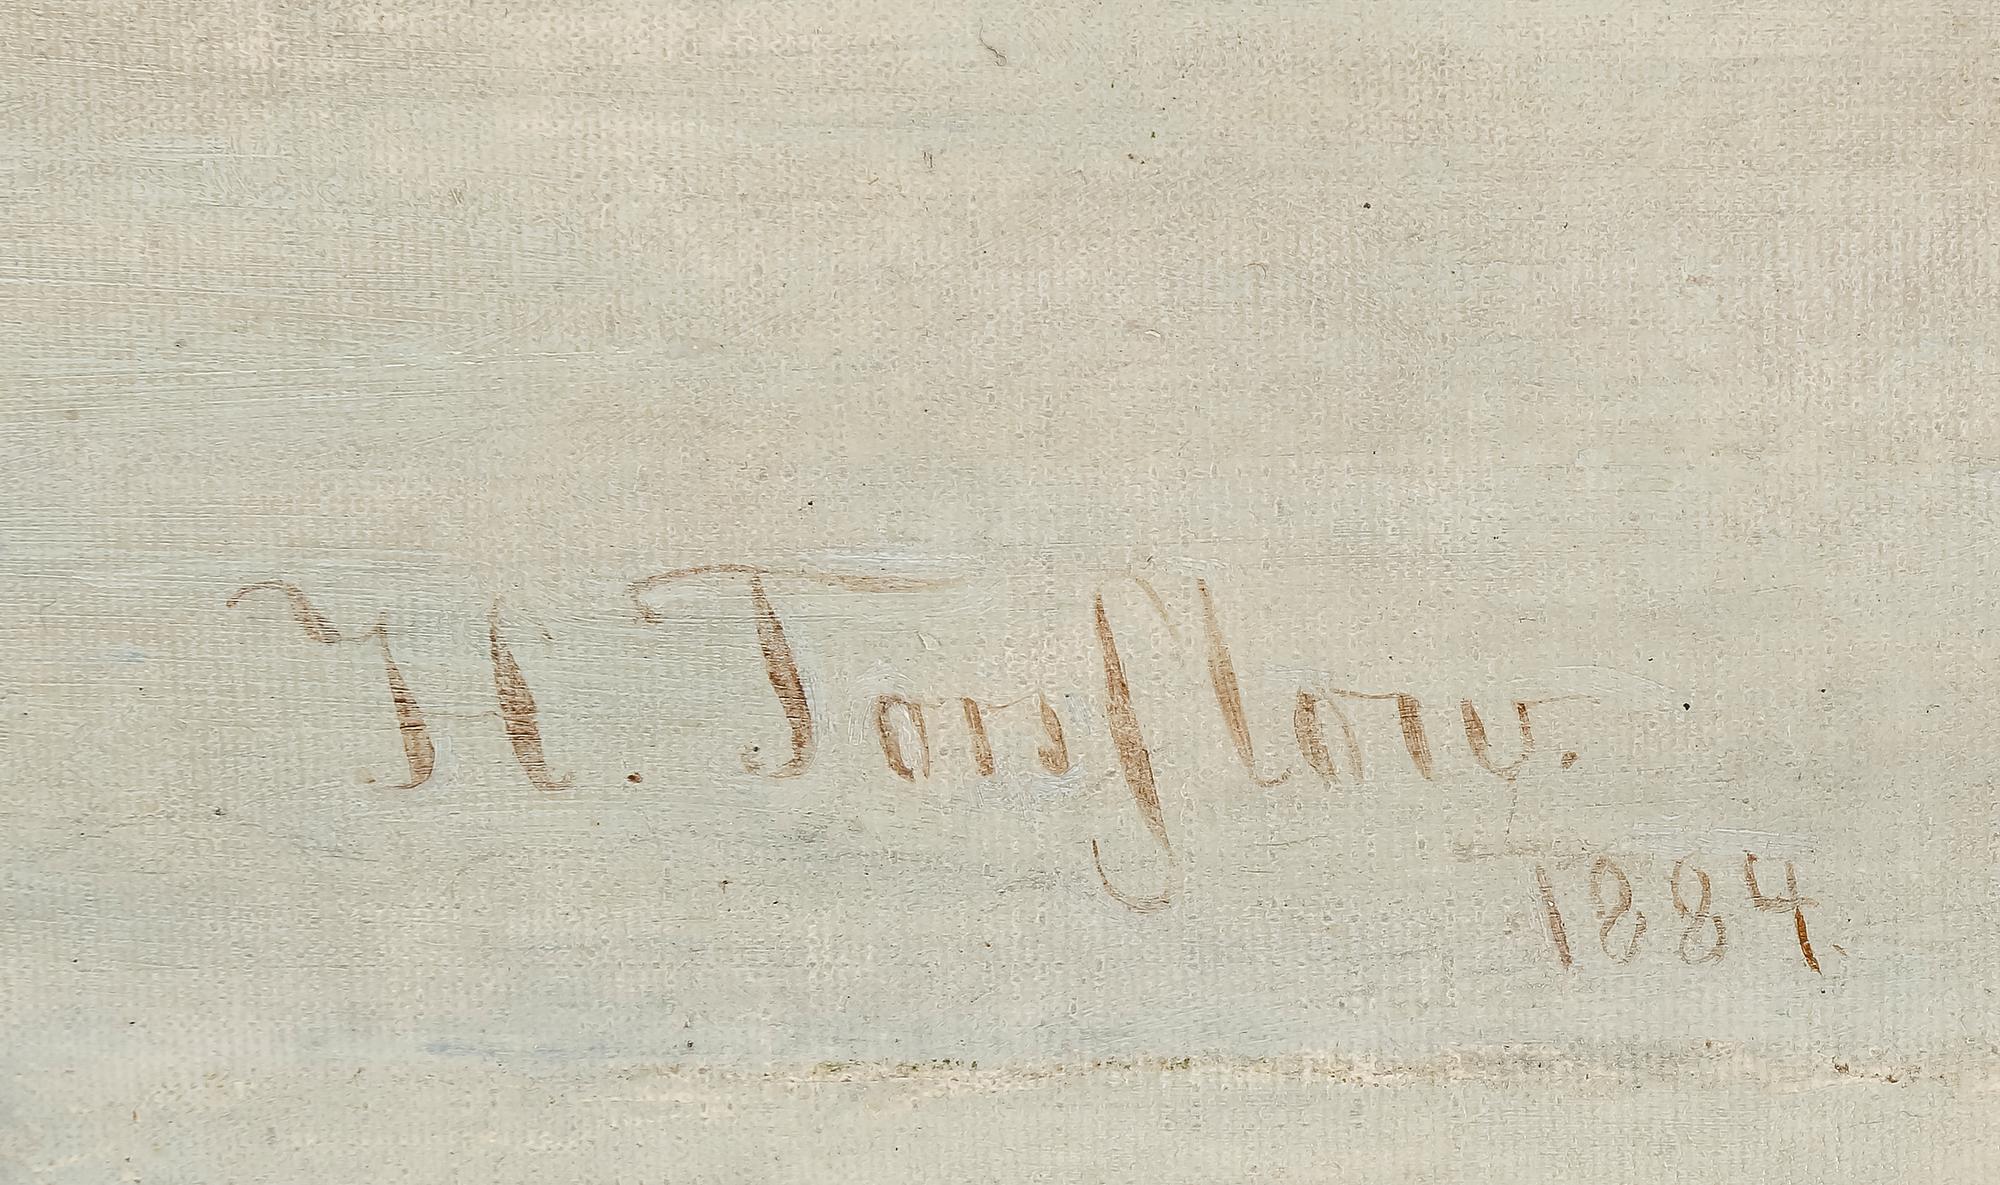 H. Torsslow.
1884.